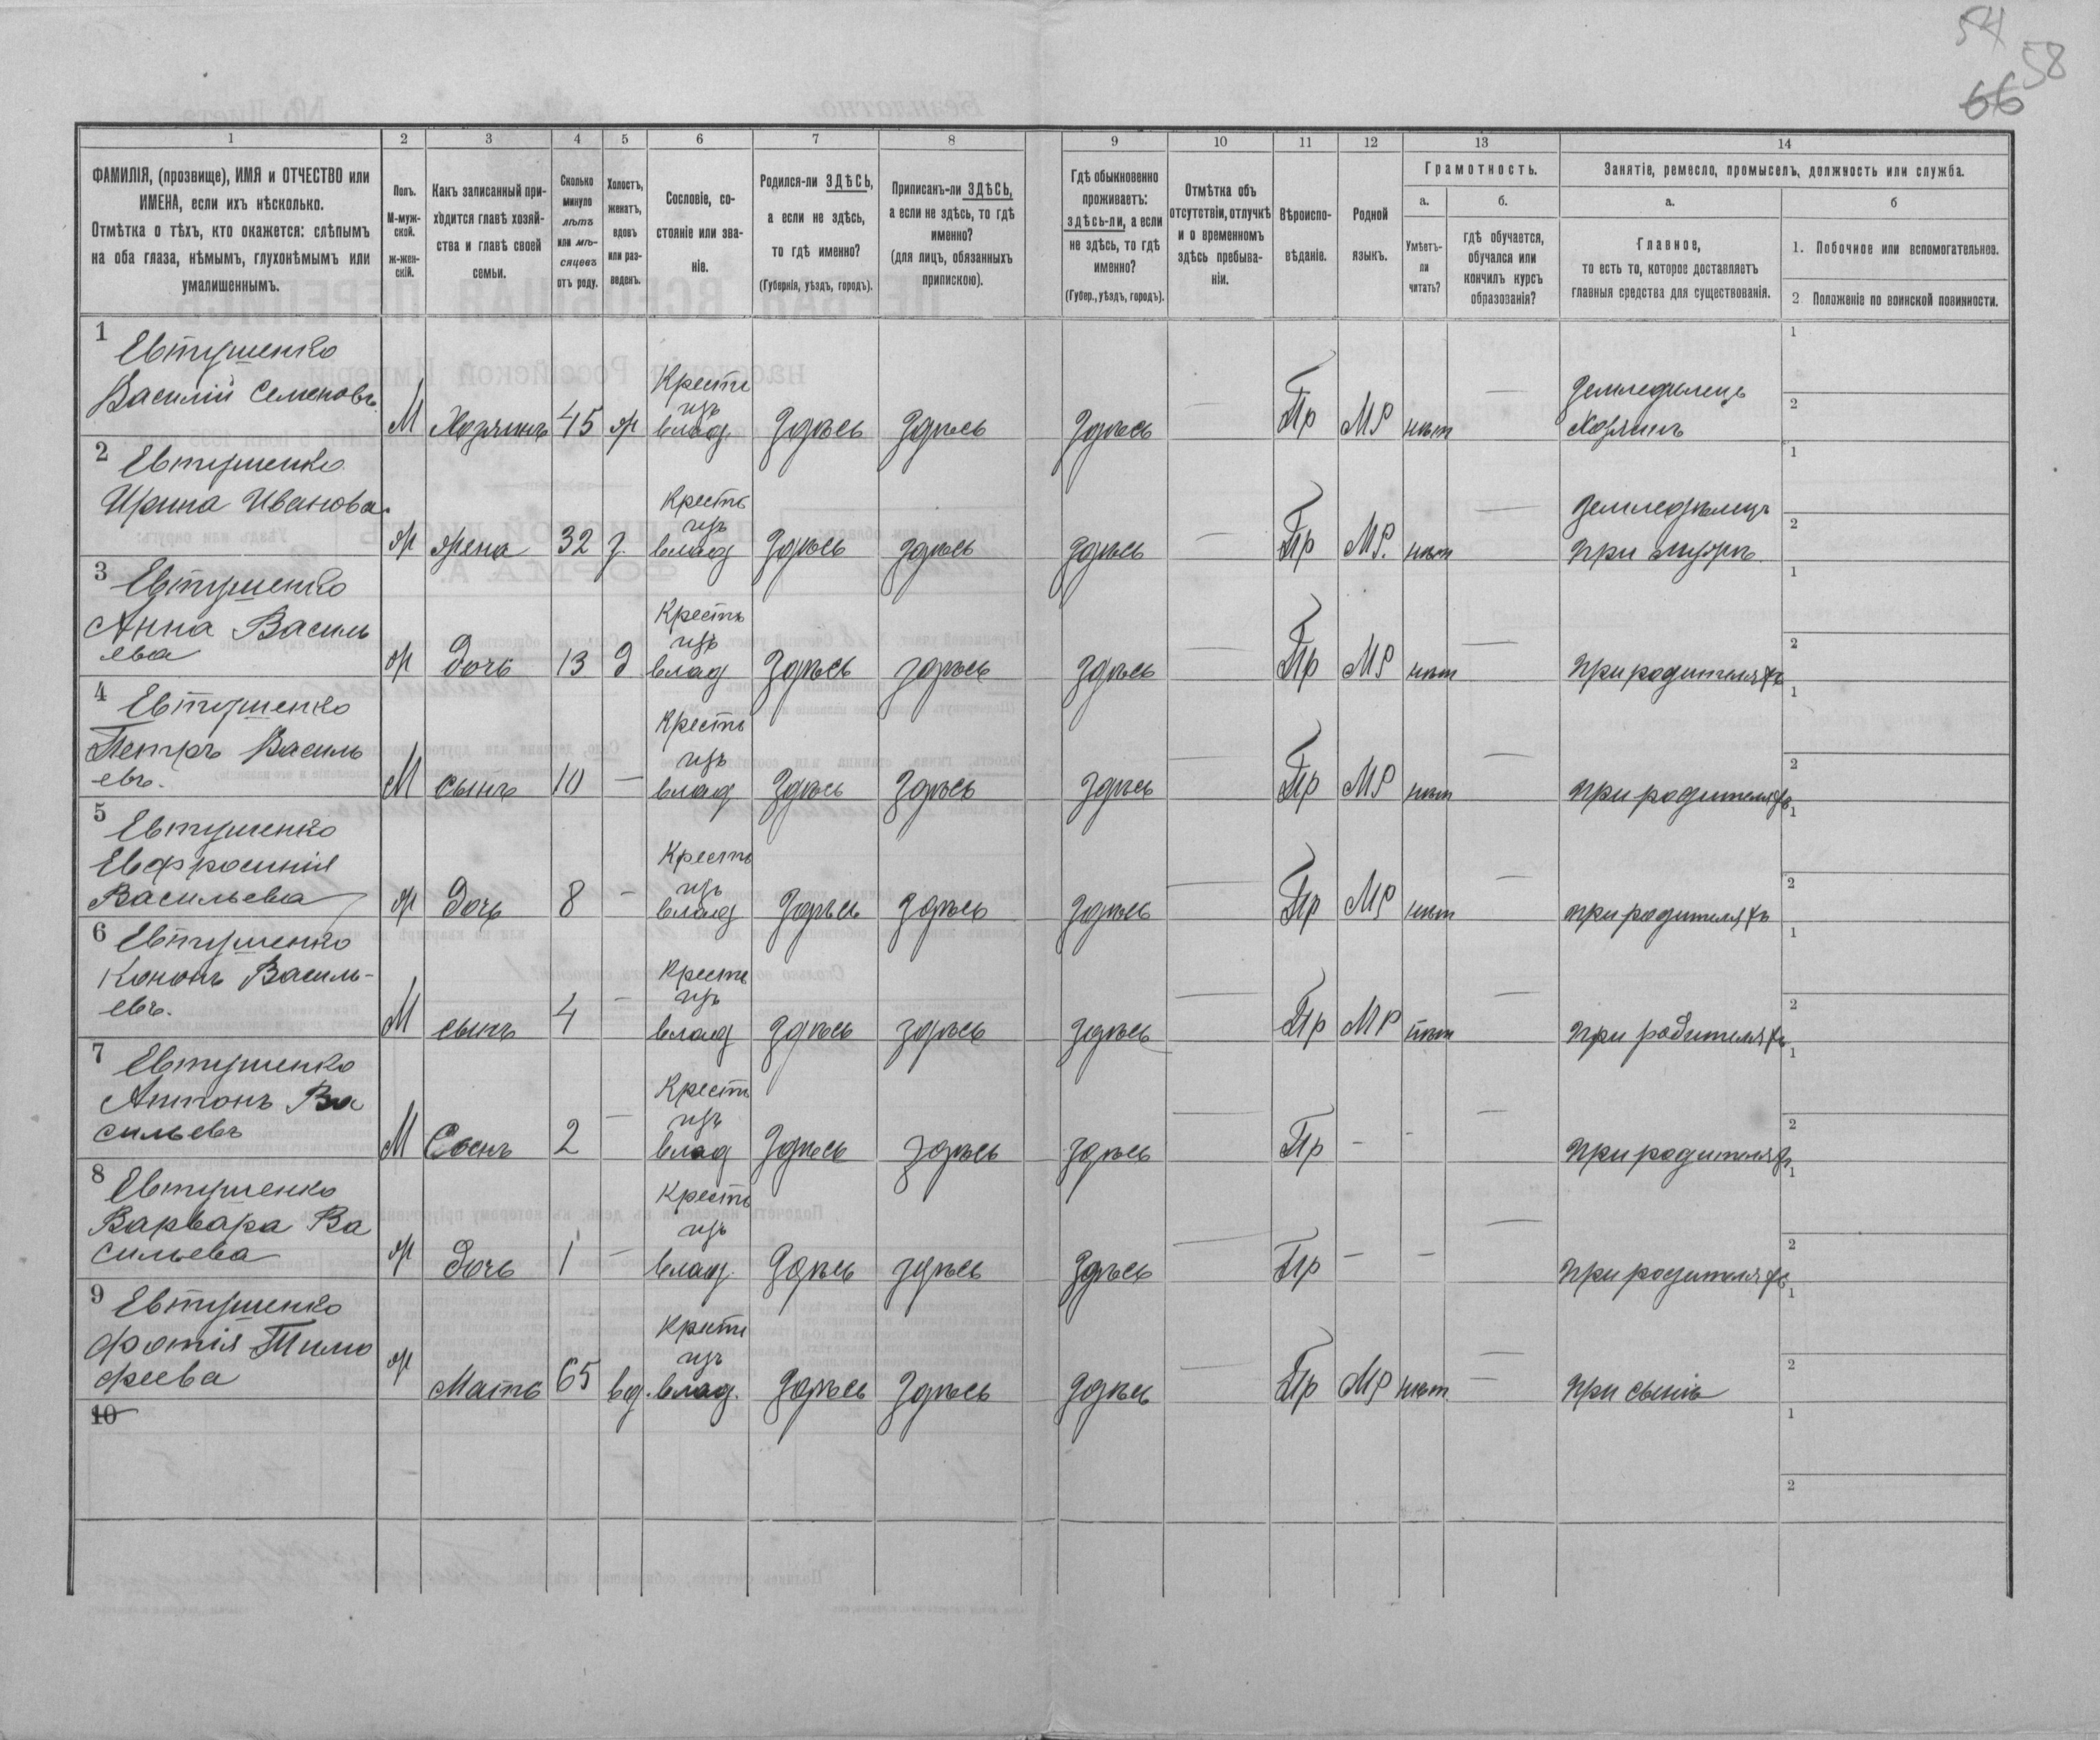 54
58
66
1 2 3 4 5 6 7 8 9 10 11 12 13 14
ФАМИЛІЯ, (прозвище), ИМЯ и ОТЧЕСТВО или ИМЕНА, если ихъ нѣсколько.
Отмѣтка о тѣхъ, кто окажется: слѣпымъ на оба глаза, нѣмымъ, глухонѣмымъ или умалишеннымъ.
Полъ. М-мужской. ж-женскій.
Какъ записанный приходится главѣ хозяйства и главѣ своей семьи.
Сколько минуло лѣтъ или мѣсяцевъ отъ роду.
Холостъ, женатъ, вдовъ или разведенъ.
Сословіе, состояніе или званіе.
Родился-ли ЗДѢСЬ, а если не здѣсь, то гдѣ именно?
(Губернія, уѣздъ, городъ).
Приписанъ-ли ЗДѢСЬ, а если не здѣсь, то гдѣ именно?
(для лицъ, обязанныхъ припискою).
Гдѣ обыкновенно проживаетъ: здѣсь-ли, а если не здѣсь, то гдѣ именно?
(Губер., уѣздъ, городъ).
Отмѣтка объ отсутствіи, отлучкѣ и о временномъ здѣсь пребываніи.
Вѣроисповѣданіе.
Родной языкъ.
Грамотность.
а. Умѣетъ-ли читать?
б. гдѣ обучается, обучался или кончилъ курсъ образованія?
Занятіе, ремесло, промыселъ, должность или служба.
а. Главное, то есть то, которое доставляетъ главныя средства для существованія.
б 1. Побочное или вспомогательное.
2 Положеніе по воинской повинности.
1 Евтушенко
Василій Семеновъ М Хозяинъ 45 ж Крестн изъ влад. Здѣсь Здѣсь Здѣсь — Пр МР нѣт — Земледѣлецъ Хозяинъ 1 2
2 Евтушенко
Ирина Иванова. ж жена 32 з. Крестн изъ влад Здѣсь Здѣсь Здѣсь — Пр МР. нѣт — Земледѣлецъ при мужѣ 1 2
3 Евтушенко
Анна Василь
ева ж дочь 13 д Крестн изъ влад Здѣсь Здѣсь Здѣсь — Пр МР нѣт — при родителяхъ 1 2
4 Евтушенко
Петръ Василь
евъ. М сынъ 10 — Крестн изъ влад Здѣсь Здѣсь Здѣсь — Пр МР нѣт — при родителяхъ 1 2
5 Евтушенко
Евфросинія
Васильева ж дочь 8 — Крестн изъ влад Здѣсь Здѣсь Здѣсь — Пр МР нѣт — при родителяхъ 1 2
6 Евтушенко
Кононъ Василь-
евъ. М сынъ 4 — Крестн изъ влад Здѣсь Здѣсь Здѣсь — Пр МР нѣт — при родителяхъ 1 2
7 Евтушенко
Антонъ Ва
сильевъ М Сынъ 2 — Крестн изъ влад Здѣсь Здѣсь Здѣсь — Пр - - — при родителяхъ 1 2
8 Евтушенко
Варвара Ва
сильева ж дочь 1 — Крестн изъ влад. Здѣсь Здѣсь Здѣсь — Пр — — — при родителяхъ 1 2
9 Евтушенко
Фотія Тимо
феева ж Мать 65 вд. Крестн изъ влад. Здѣсь Здѣсь Здѣсь — Пр МР нѣт. — при сынѣ 1 2
10 1 2